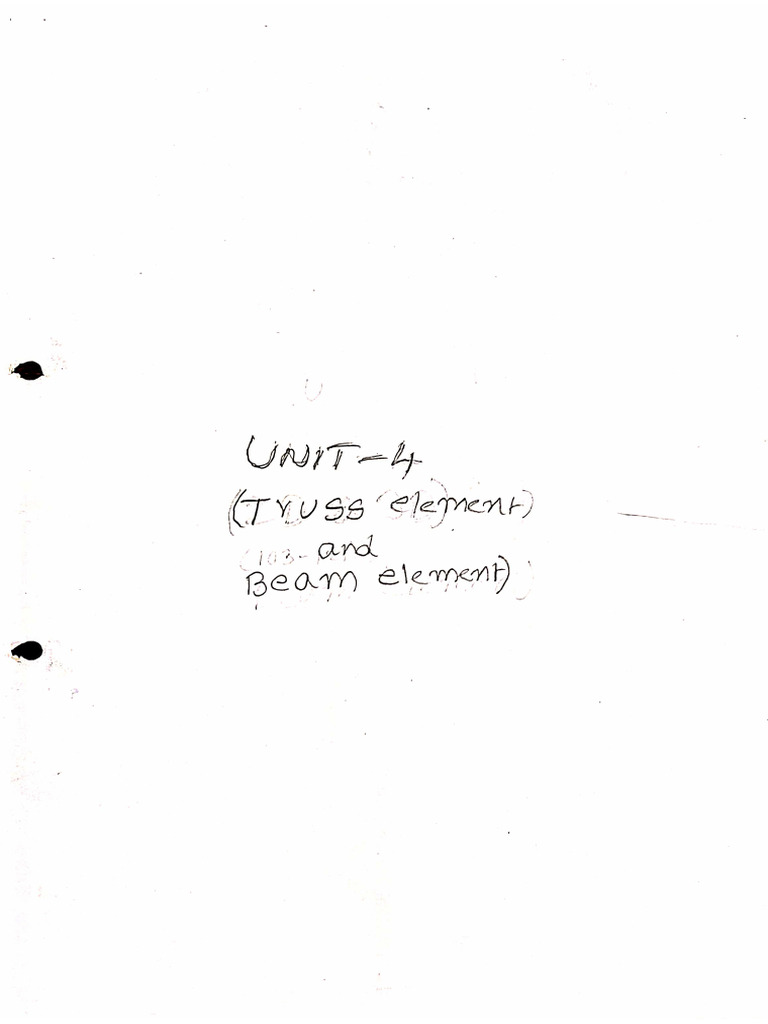 UNIT-4
(Truss element)
and
Beam element)